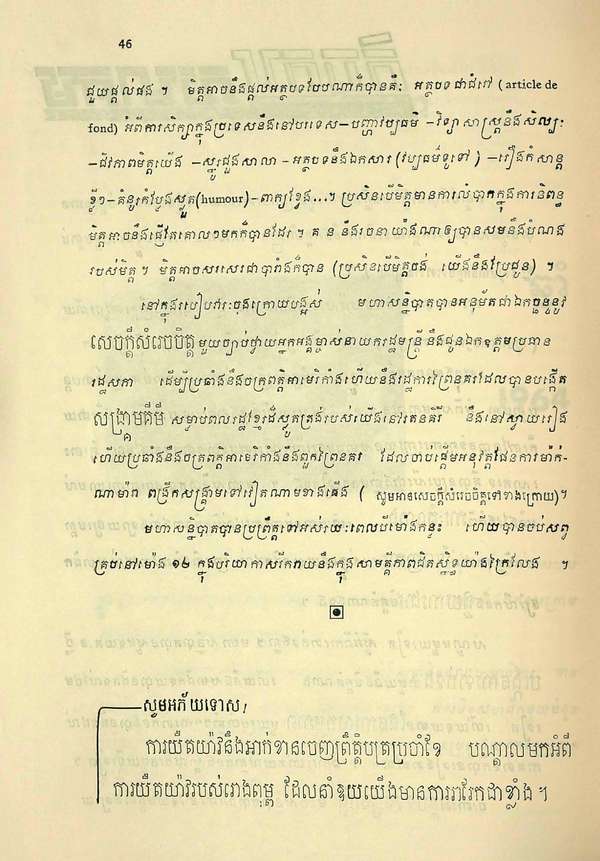 46
ជួយផ្ដល់ផង ។ មិត្តអាចនឹងផ្ដល់អត្ថបទបែបណាក៏បានគឺ: អត្ថបទជាជំពៅ ( article de
fond) អំពីការសិក្សាក្នុងប្រទេសនឹងនៅបរទេស–បញ្ហាវប្បធម៌ –វិទ្យាសាស្ត្រនឹងសិល្បៈ
–ជីវភាពមិត្តយើង –ស្នូរជួងសាលា –អត្ថបទនឹងឯកសារ (វប្បធម៌ទូទៅ) –រឿងកំសាន្ត
ខ្លីៗ–គំនូរកំប្លែងស្ងួត(humour)–ពាក្យខ្វែង...។ ប្រសិនបើមិត្តមានការលំបាកក្នុងការនិពន្ធ
មិត្តអាចនឹងផ្ញើតែគោលៗមកក៏បានដែរ ។ គ ន នឹងរចនាយ៉ាងណាឲ្យបានសមនឹងបំណង
របស់មិត្ត ។ មិត្តអាចសរសេរជាបារាំងក៏បាន (ប្រសិនបើមិត្តចង់ យើងនឹងប្រែជូន) ។
នៅក្នុងរបៀបវារៈចុងក្រោយបង្អស់ មហាសន្និបាតបានអនុម័តជាឯកច្ឆន្ទនូវ
សេចក្ដីសំរេចចិត្ត មួយច្បាប់ថ្វាយអ្នកអង្គម្ចាស់នាយករដ្ឋមន្ត្រី នឹងជូនឯកឧត្តមប្រធាន
រដ្ឋសភា ដើម្បីប្រឆាំងនឹងចក្រពត្តិអាមេរិកាំងហើយនឹងរដ្ឋការព្រៃនគរដែលបានបង្កើត
សង្គ្រាមគីមី សម្លាប់ពលរដ្ឋខ្មែរដ៏ស្លូតត្រង់របស់យើងនៅរតនគិរី នឹងនៅស្វាយរៀង
ហើយប្រឆាំងនឹងចក្រពត្តិអាមេរិកាំងនឹងពួកព្រៃនគរ ដែលចាប់ផ្ដើមអនុវត្តផែនការម៉ាក់-
ណាម៉ារ៉ា ពង្រីកសង្គ្រាមទៅវៀតណាមខាងជើង ( សូមអានសេចក្ដីសំរេចចិត្តទៅខាងក្រោយ)។
មហាសន្និបាតបានប្រព្រឹត្តទៅអស់រយៈពេលបីម៉ោងកន្លះ ហើយបានចប់សព្វ
គ្រប់នៅម៉ោង ១២ ក្នុងបរិយាកាសរីករាយនឹងក្នុងសាមគ្គីភាពជិតស្និទ្ធយ៉ាងក្រៃលែង ។
សូមអភ័យទោស!
ការយឺតយ៉ាវនឹងអាក់ខានចេញព្រឹត្តិបត្រប្រចាំខែ បណ្ដាលមកអំពី
ការយឺតយ៉ាវរបស់រោងពុម្ព ដែលនាំឱ្យយើងមានការរារែកជាខ្លាំង ។